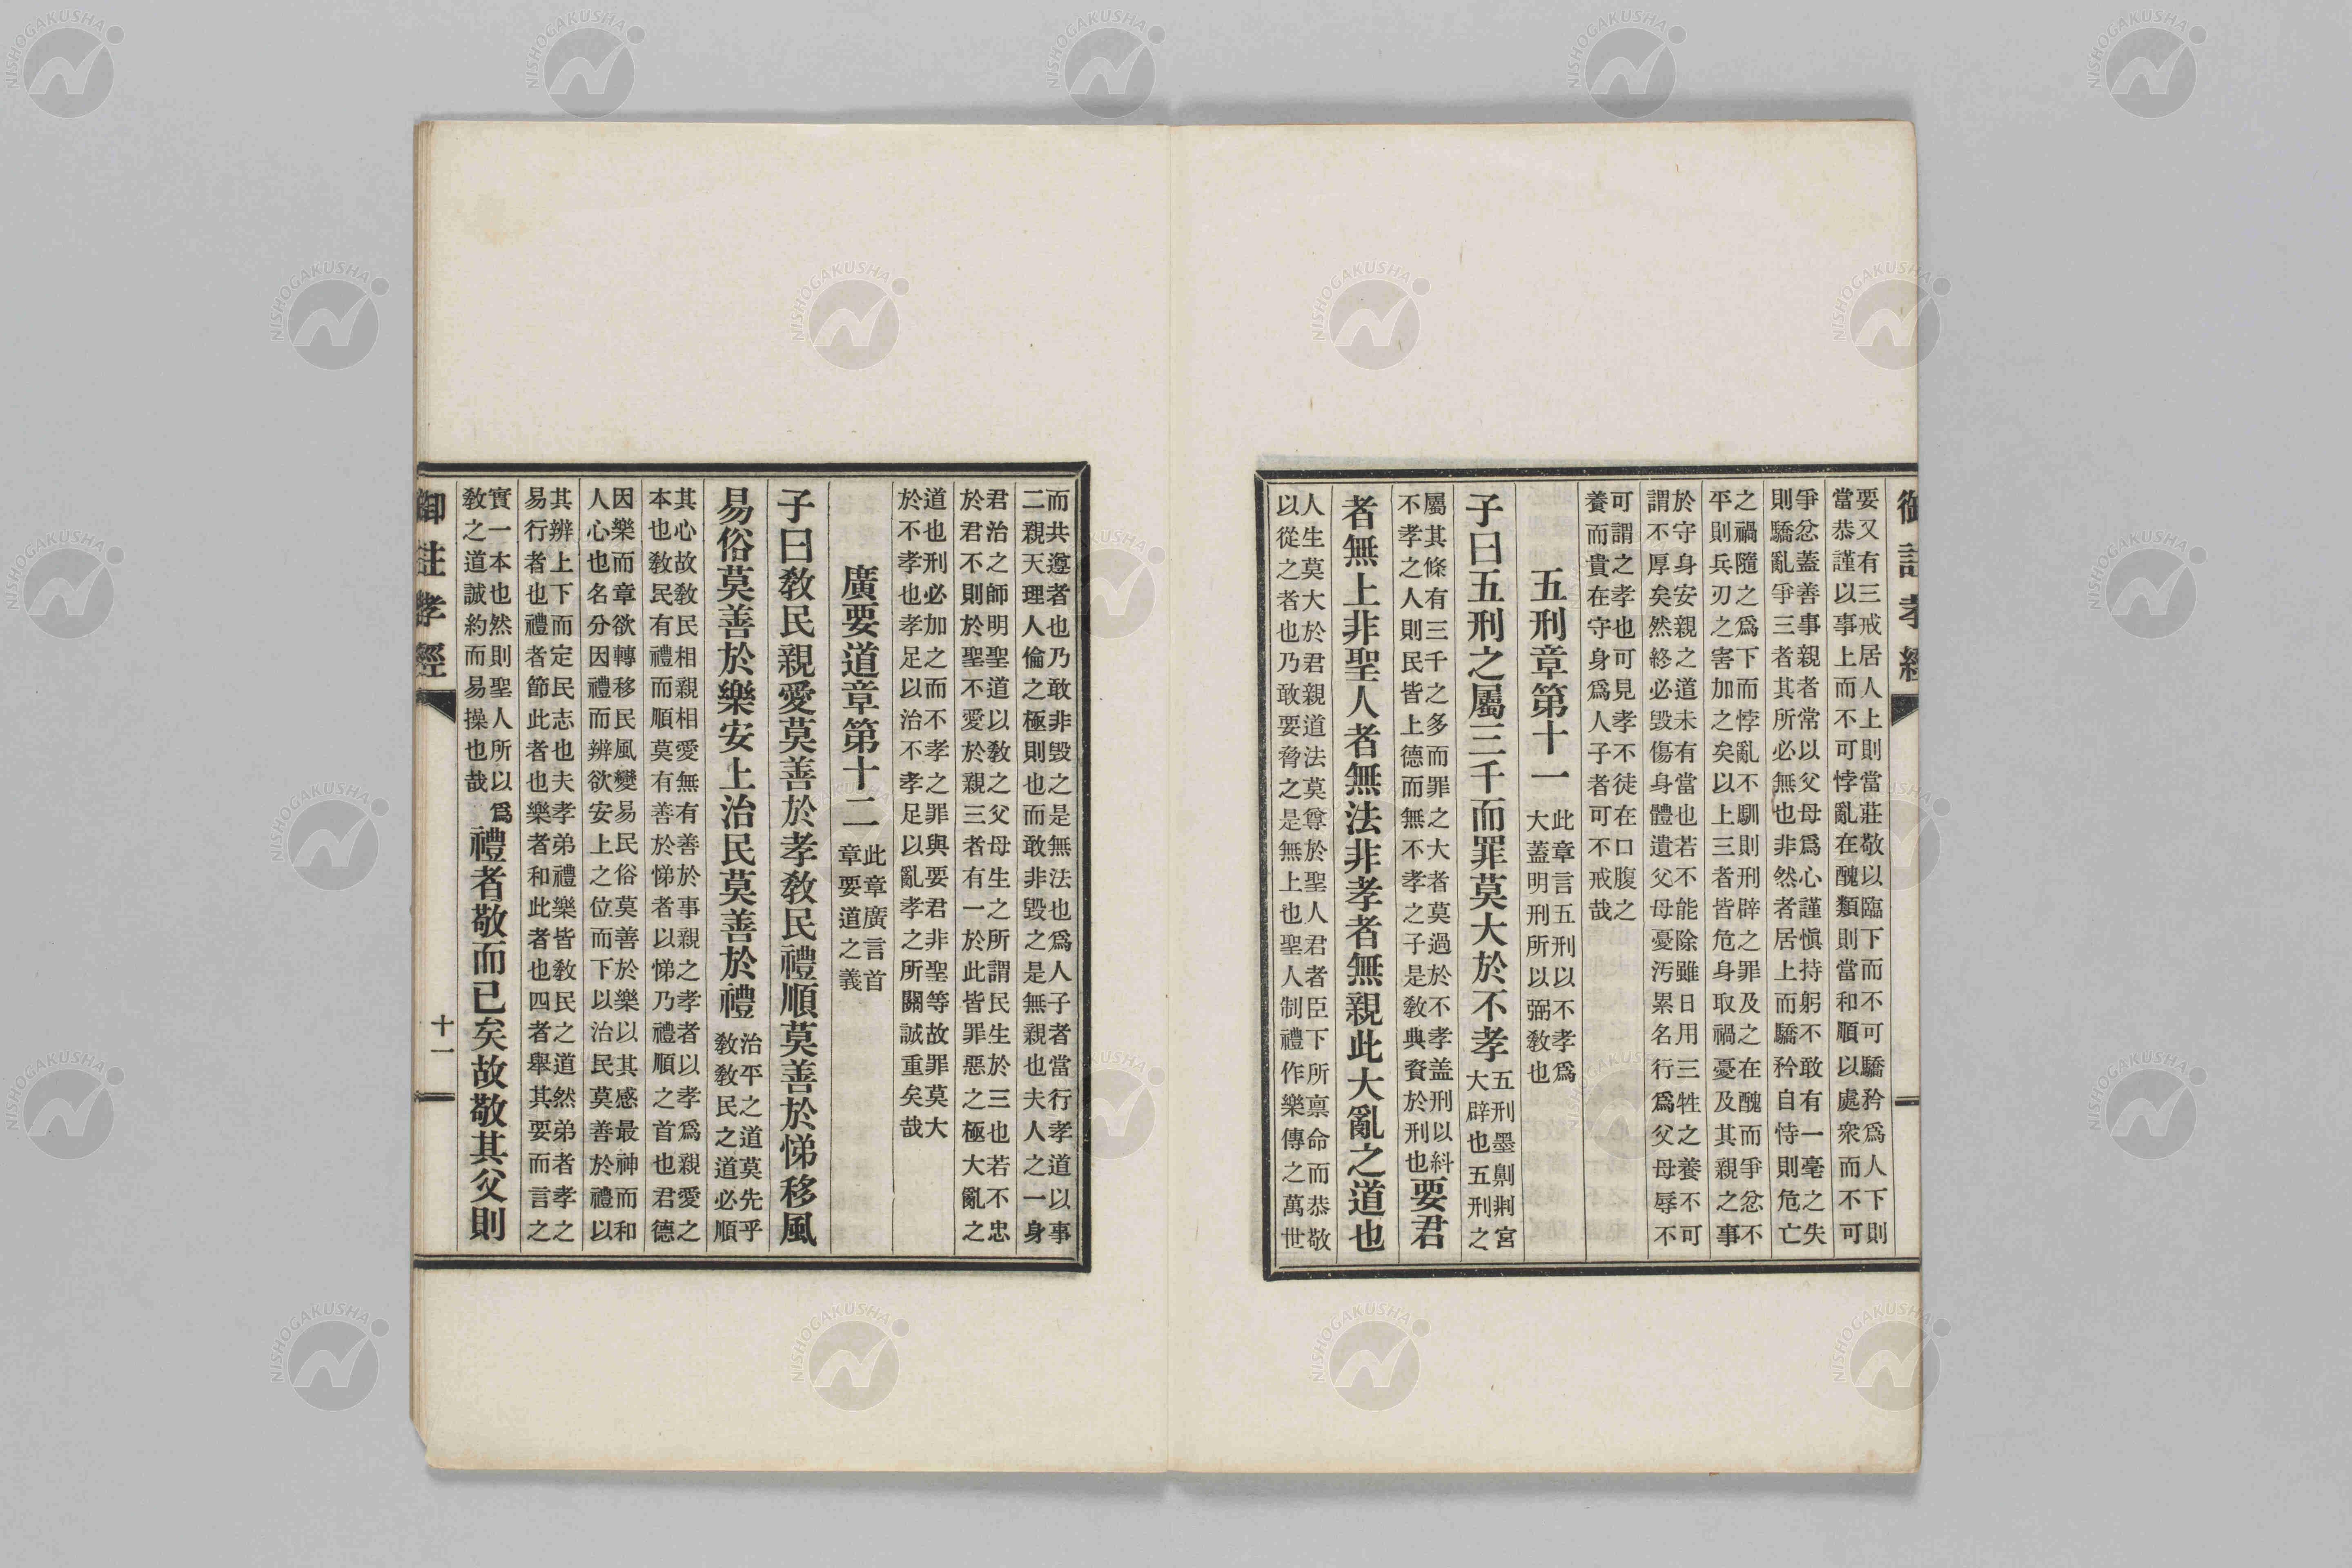 御註孝經
要又有三戒居人上則當莊敬以臨下而不可驕矜爲人下則
當恭謹以事上而不可悖亂在醜類則當和順以處衆而不可
爭忿蓋善事親者常以父母爲心謹愼持躬不敢有一毫之失
則驕亂爭三者其所必無也非然者居上而驕矜自恃則危亡
之禍隨之爲下而悖亂不馴則刑辟之罪及之在醜而爭忿不
平則兵刃之害加之矣以上三者皆危身取禍憂及其親之事
於守身安親之道未有當也若不能除雖日用三牲之養不可
謂不厚矣然終必毀傷身體遺父母憂汚累名行爲父母辱不
可謂之孝也可見孝不徒在口腹之
養而貴在守身爲人子者可不戒哉
五刑章第十一
此章言五刑以不孝爲
大蓋明刑所以弼敎也
子曰五刑之屬三千而罪莫大於不孝
五刑墨劓剕宮
大辟也五刑之
屬其條有三千之多而罪之大者莫過於不孝盖刑以糾
不孝之人則民皆上德而無不孝之子是敎典賚於刑也
要君
者無上非聖人者無法非孝者無親此大亂之道也
人生莫大於君親道法莫尊於聖人君者臣下所禀命而恭敬
以從之者也乃敢要脅之是無上也聖人制禮作樂傳之萬世
而共遵者也乃敢非毀之是無法也爲人子者當行孝道以事
二親天理人倫之極則也而敢非毀之是無親也夫人之一身
君治之師明聖道以敎之父母生之所謂民生於三也若不忠
於君不則於聖不愛於親三者有一於此皆罪惡之極大亂之
道也刑必加之而不孝之罪與要君非聖等故罪莫大
於不孝也孝足以治不孝足以亂孝之所關誠重矣哉
廣要道章第十二
此章廣言首
章要道之義
子曰敎民親愛莫善於孝敎民禮順莫善於悌移風
易俗莫善於樂安上治民莫善於禮
治平之道莫先乎
敎敎民之道必順
其心故敎民相親相愛無有善於事親之孝者以孝爲親愛之
本也敎民有禮而順莫有善於悌者以悌乃禮順之首也君德
因樂而章欲轉移民風變易民俗莫善於樂以其感最神而和
人心也名分因禮而辨欲安上之位而下以治民莫善於禮以
其辨上下而定民志也夫孝弟禮樂皆敎民之道然弟者孝之
易行者也禮者節此者也樂者和此者也四者舉其要而言之
實一本也然則聖人所以爲
敎之道誠約而易操也哉
禮者敬而已矣故敬其父則
御註孝經
十一